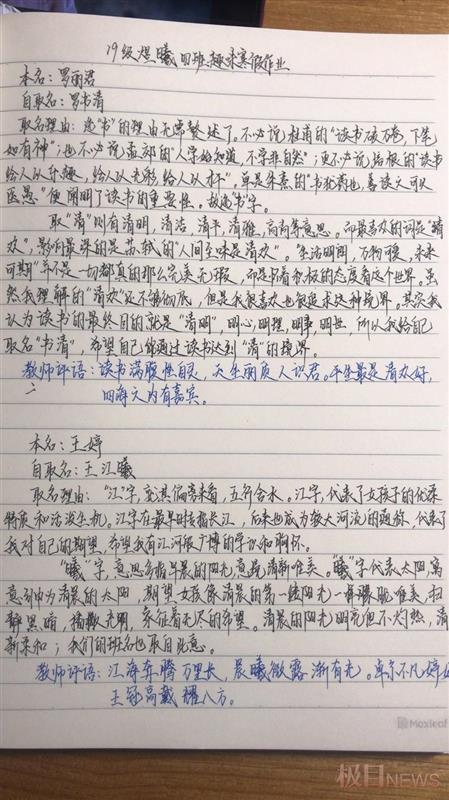 19级煜曦四班趣味寒假作业
本名：罗丽君
自取名：罗书清
取名理由：选“书”的理由无需赘述了。不必说杜甫的“读书破万卷，下笔
如有神”；也不必说孟郊的“人学始知道，不学非自然”；更不必说培根的“读书
给人以乐趣，给人以光彩，给人以才干”。单是朱熹的“书犹药也，善读之可以
医愚”便阐明了读书的重要性。故选“书”字。
取“清”则有清明，清洁，清平，清雅，高尚等意思。而最喜欢的词是“清
欢”，影响最深的是苏轼的“人间至味是清欢”。“生活明朗，万物可爱，未来
可期”并不是一切都真的那么完美无瑕，而是带着积极的态度看这个世界。虽
然我理解的“清欢”还不够彻底，但是我很喜欢也很追求这种境界。其实我
认为读书的最终目的就是“清明”，明心，明理，明事，明世，所以我给自己
取名“书清”，希望自己能通过读书达到“清”的境界。
教师评语：读书满腹性自灵，天生丽质人识君。平生最是清欢好，
四海之内有嘉宾。
二
本名：王婷
自取名：王江曦
取名理由：“江”字，究其偏旁来看，五行含水。江字，代表了女孩子的优柔
特质和活泼生机。江字在最早时专指长江，后来也成为较大河流的通称，代表了
我对自己的期望，希望我有江河般广博的学识和胸怀。
“曦”字，意思多指早晨的阳光，意蕴清新唯美。“曦”字代表太阳，寓
意引申为清晨的太阳，期望女孩像清晨的第一缕阳光一样朦胧唯美，扫
静黑暗，播撒光明，象征着无尽的希望。清晨的阳光明亮但不灼热，清
新亲和；我们的班名也取自此意。
教师评语：江海奔腾万里长，晨曦微露渐有光。卓尔不凡婷婷
王冠高戴耀八方。
Maxleaf
极目NEWS